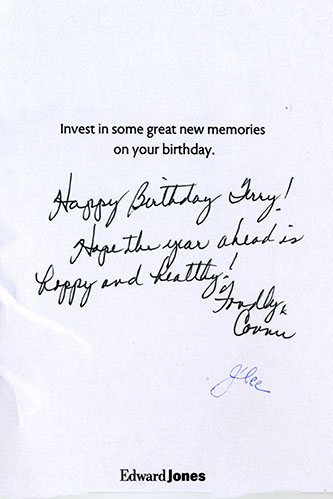 Invest in some great new memories
on your birthday.
Happy Birthday Terry!
Hope the year ahead is
happy and healthy!
Fondly,
Connie
J'Lee
EdwardJones